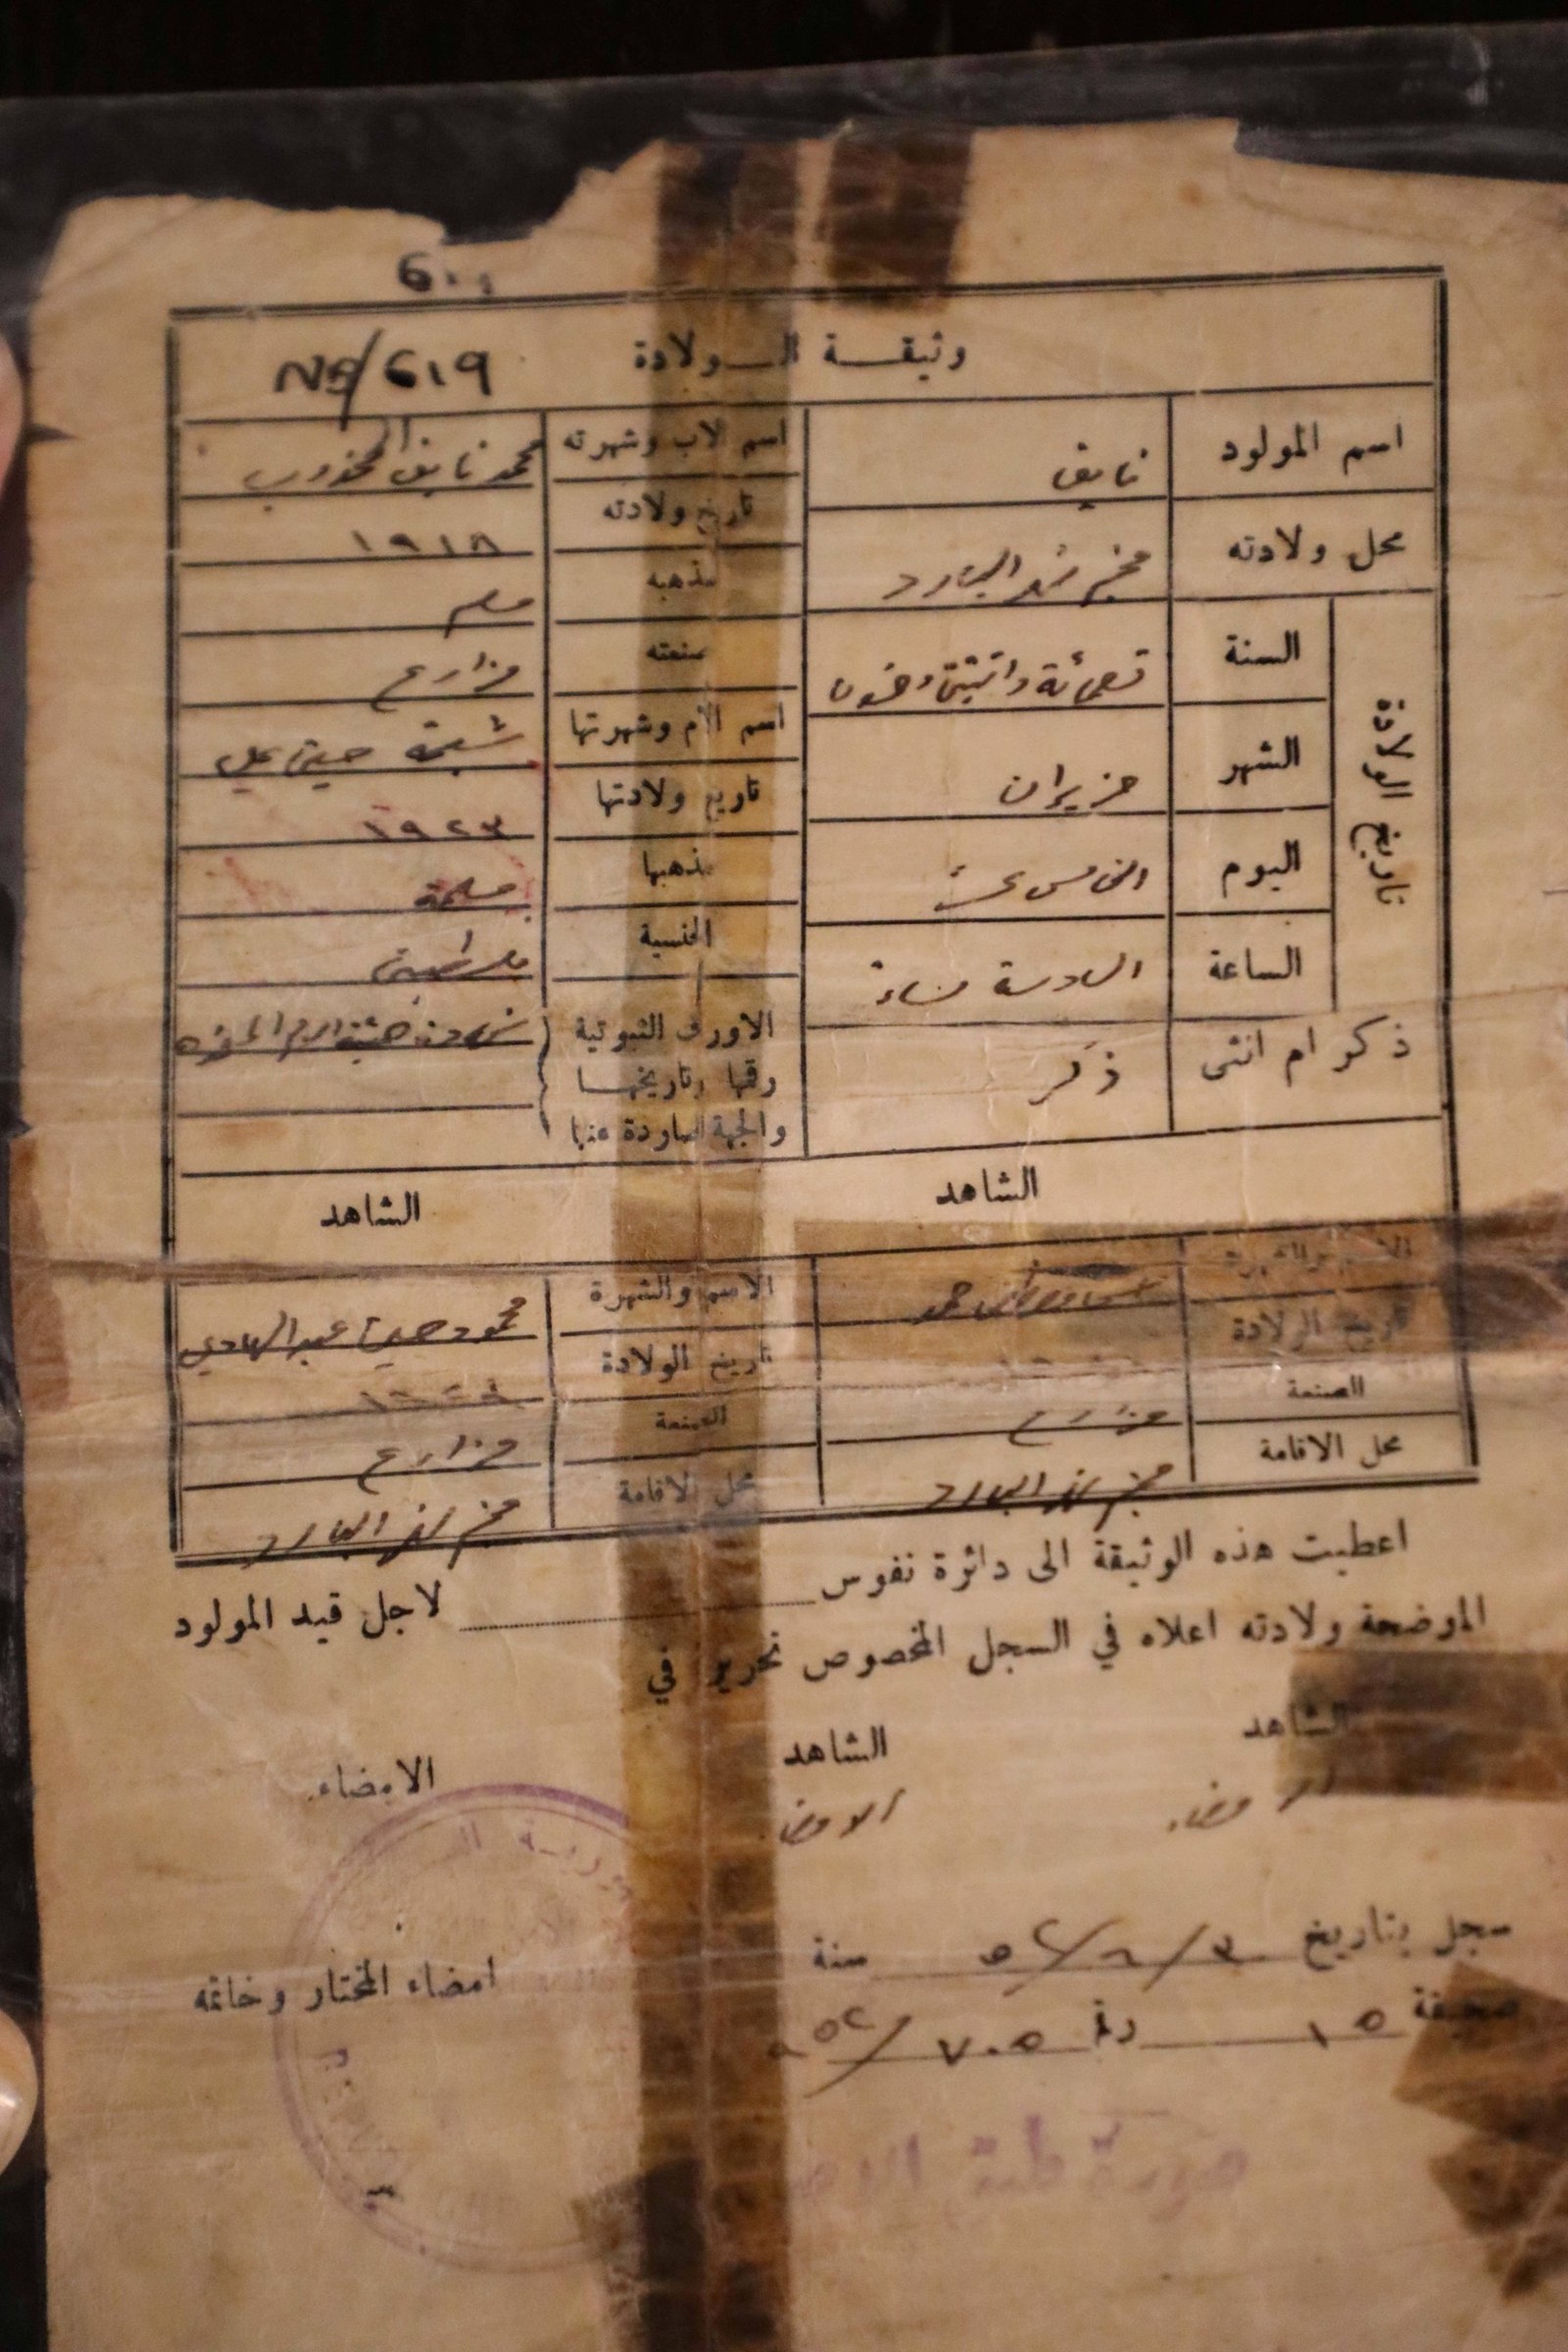 وثيقة الولادة
№/619
اسم المولود
نايف
محل ولادته
مخيم نهر البارد
تاريخ الولادة
السنة
تسعمائة واثنين وخمسون
الشهر
حزيران
اليوم
الخامس عشر
الساعة
السادسة مساءً
ذكر ام انثى
ذكر
اسم الاب وشهرته
محمد نايف
تاريخ ولادته
١٩١٨
مذهبه
مسلم
صنعته
مزارع
اسم الام وشهرتها
حسين علي
تاريخ ولادتها
١٩٢٣
مذهبها
مسلمة
الجنسية
فلسطين
الاوراق الثبوتية
رقمها وتاريخها
والجهة الصادرة عنها
شهادة هيئة الامم المتحدة
الشاهد
الشاهد
الاسم والشهرة
تاريخ الولادة
الصنعة
مزارع
محل الاقامة
مخيم نهر البارد
الاسم والشهرة
محمود حسين عبد الهادي
تاريخ الولادة
الصنعة
مزارع
محل الاقامة
مخيم نهر البارد
اعطيت هذه الوثيقة الى دائرة نفوس لاجل قيد المولود
الموضحة ولادته اعلاه في السجل المخصوص تحرير في
الشاهد
الشاهد
الامضاء
امضاء المختار وخاتمه
سجل بتاريخ ٣/٦/٥٢ سنة
صحيفة ١٥ رقم ٧٠٥/٩٥٢
صورة طبق